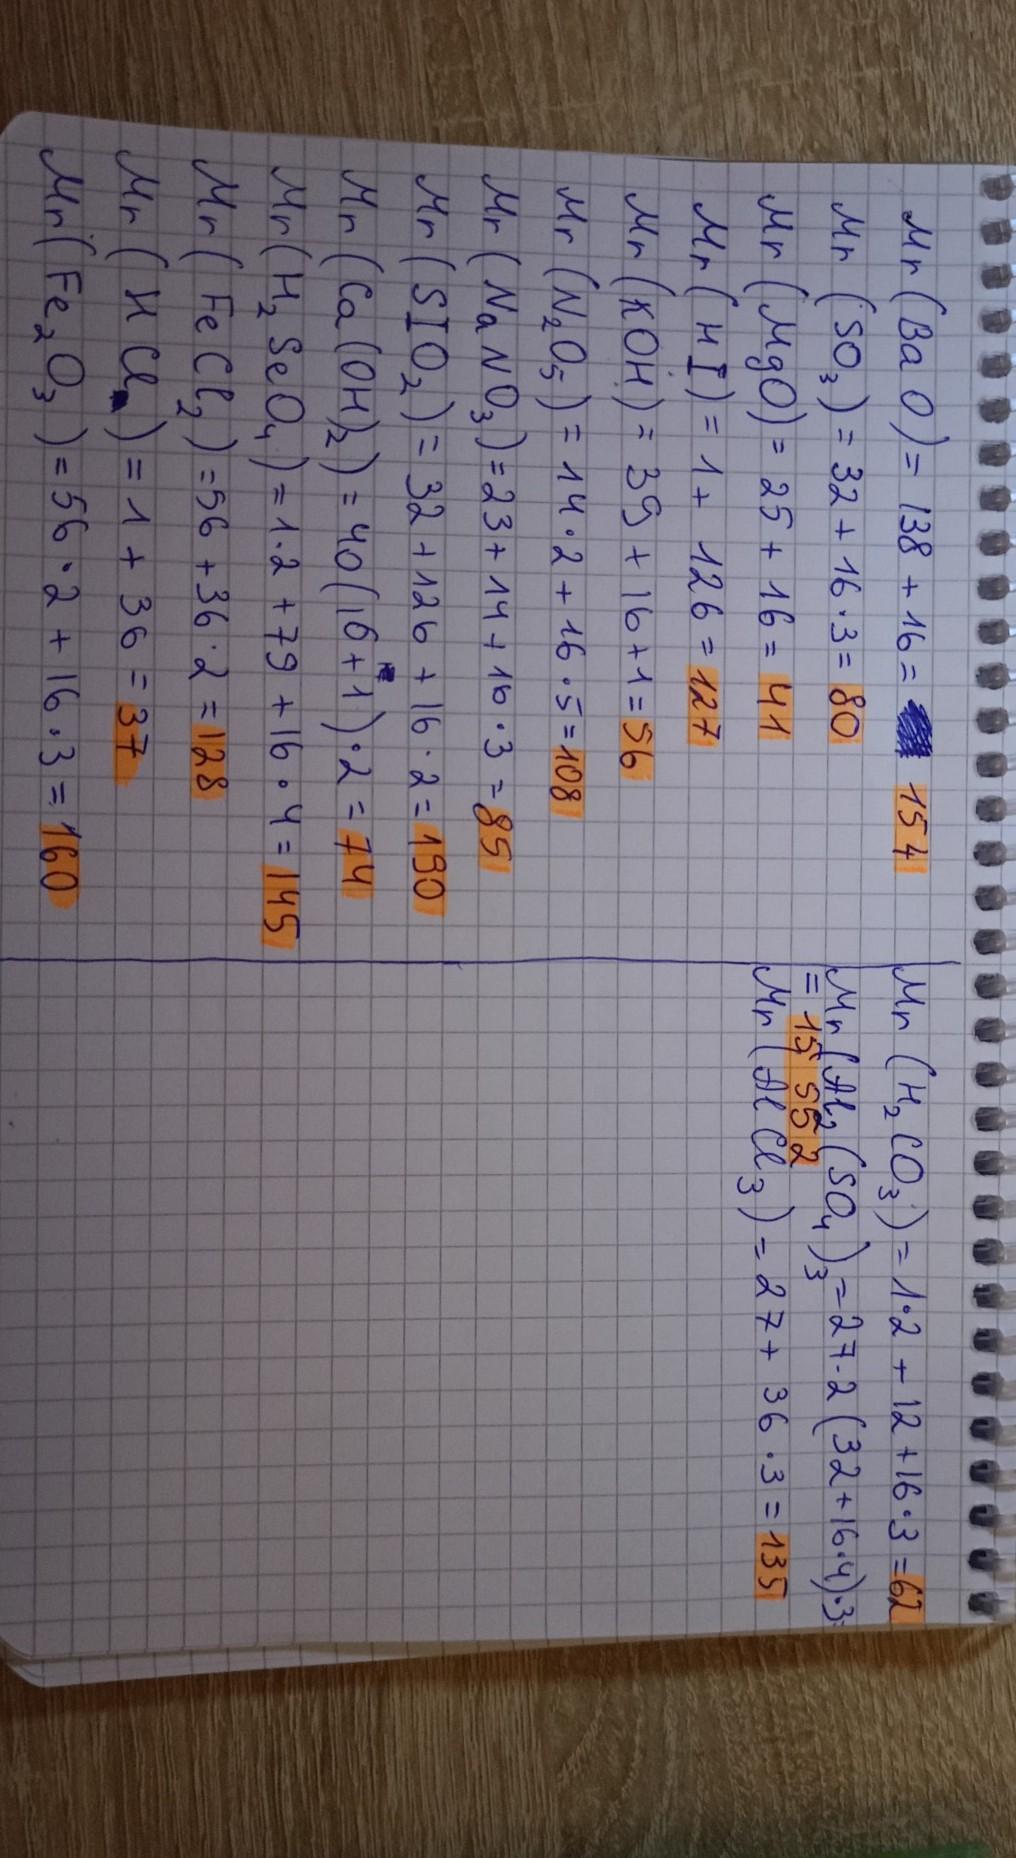 Mr (BaO) = 138 + 16 = 154
Mr (SO3) = 32 + 16·3 = 80
Mr (MgO) = 25 + 16 = 41
Mr (HI) = 1 + 126 = 127
Mr (KOH) = 39 + 16 + 1 = 56
Mr (N2O5) = 14·2 + 16·5 = 108
Mr (NaNO3) = 23 + 14 + 16·3 = 85
Mr (SIO2) = 32 + 126 + 16·2 = 190
Mr (Ca(OH)2) = 40(16+1)·2 = 74
Mr (H2SeO4) = 1·2 + 79 + 16·4 = 145
Mr (FeCl2) = 56 + 36·2 = 128
Mr (HCl) = 1 + 36 = 37
Mr (Fe2O3) = 56·2 + 16·3 = 160
Mr (H2CO3) = 1·2 + 12 + 16·3 = 62
Mr (Al2(SO4)3 = 27·2(32+16·4)·3=
= 15 552
Mr (AlCl3) = 27 + 36·3 = 135